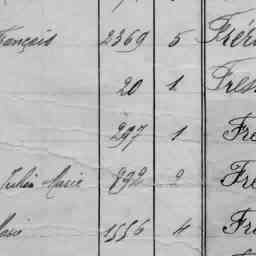 rançais 2369 5 Fré
20 1 Fres
297 1 Fré
Julien Marie 892 2 Fré
1556 4 Fr